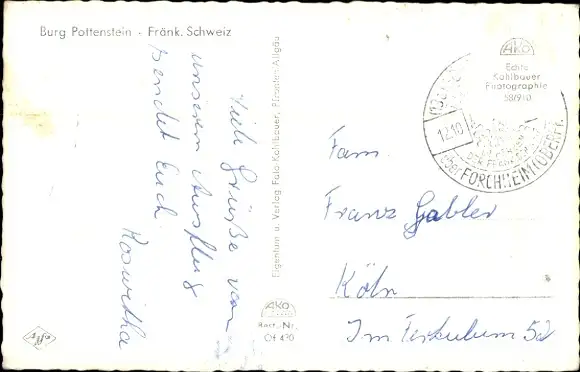 Burg Pottenstein - Fränk. Schweiz
Viele Grüße von
unserem Ausflug
sendet Euch
Roswitha
Eigentum u. Verlag Foto Kohlbauer, Pfronten-Allgäu
AKO
Best.-Nr.
Of 470
AKO
Echte
Kohlbauer
Photographie
58/910
12.10
über FORCHHEIM (OBERFR.
Fam.
Franz Gabler
Köln
Im Ferkulum 52